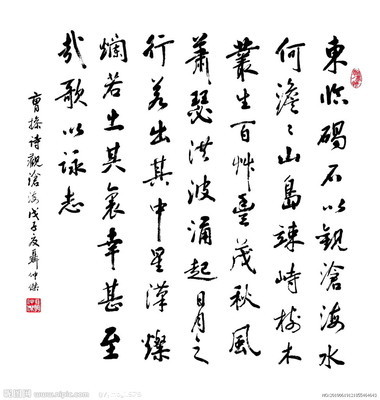 東临碣石以觀滄海水
何澹〻山島竦峙树木
叢生百艸豐茂秋風
蕭瑟洪波涌起日月之
行若出其中星漢燦
爛若出其裏幸甚至
哉歌以詠志
曹操诗觀滄海戊子夏聶仲傑
www.nipic.com